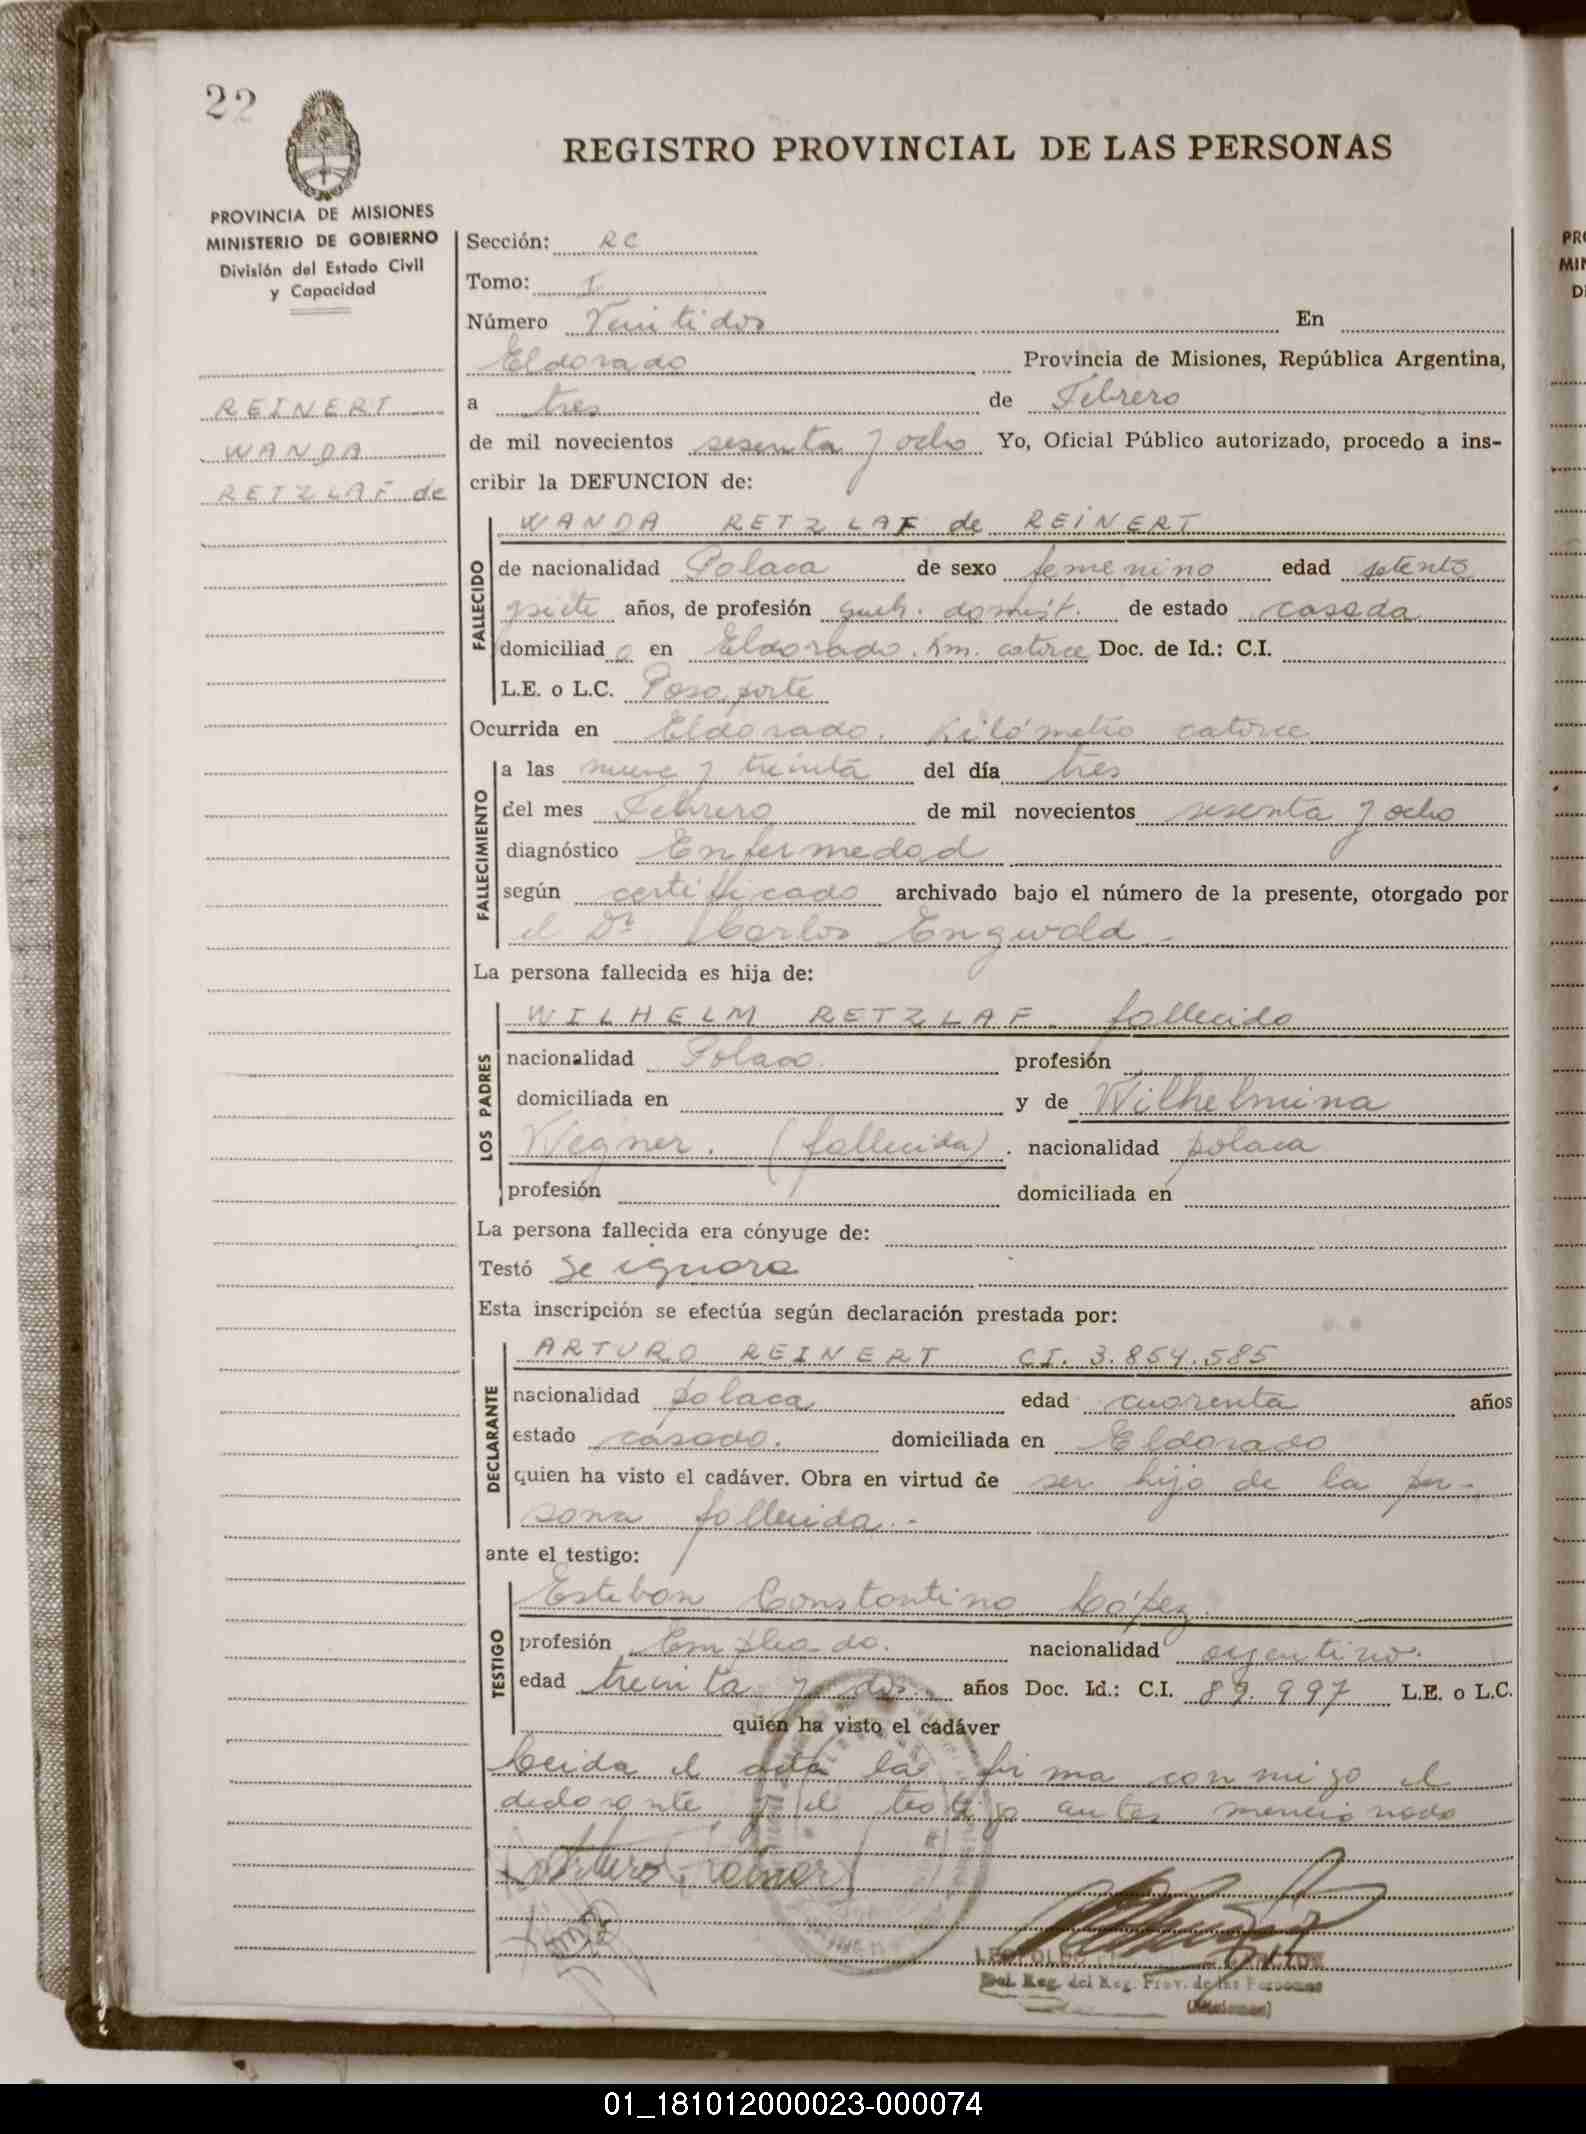 22
REGISTRO PROVINCIAL DE LAS PERSONAS
PROVINCIA DE MISIONES
MINISTERIO DE GOBIERNO
División del Estado Civil
y Capacidad
REINERT
WANDA
RETZLAF de
Sección: RC
Tomo: I
Número Veintidos En
Eldorado Provincia de Misiones, República Argentina,
a tres de Febrero
de mil novecientos sesenta y ocho Yo, Oficial Público autorizado, procedo a ins-
cribir la DEFUNCION de:
FALLECIDO
WANDA RETZLAF de REINERT
de nacionalidad Polaca de sexo femenino edad setenta
y siete años, de profesión queh. domést. de estado casada
domiciliad a en Eldorado. Km. catorce Doc. de Id.: C.I.
L.E. o L.C. Pasaporte
Ocurrida en Eldorado. Kilómetro catorce
FALLECIMIENTO
a las nueve y treinta del día tres
del mes Febrero de mil novecientos sesenta y ocho
diagnóstico Enfermedad
según certificado archivado bajo el número de la presente, otorgado por
el Dr. Carlos Engwald.-
La persona fallecida es hija de:
LOS PADRES
WILHELM RETZLAF fallecido
nacionalidad Polaco. profesión
domiciliada en y de Wilhelmina
Wegner. (fallecida). nacionalidad polaca
profesión domiciliada en
La persona fallecida era cónyuge de:
Testó se ignora
Esta inscripción se efectúa según declaración prestada por:
DECLARANTE
ARTURO REINERT CI. 3.854.585
nacionalidad polaca edad cuarenta años
estado casado. domiciliada en Eldorado
quien ha visto el cadáver. Obra en virtud de ser hijo de la per-
sona fallecida.-
ante el testigo:
TESTIGO
Esteban Constantino López.
profesión Empleado. nacionalidad argentino.
edad treinta y dos. años Doc. Id.: C.I. 89.997 L.E. o L.C.
quien ha visto el cadáver
Leida el acta la firma conmigo el
declarante y el testigo antes mencionado
Arturo Reinert
LEOPOLDO
Del. Reg. del Reg. Prov. de las Personas
(Misiones)
PRO
MIN
D
01_181012000023-000074